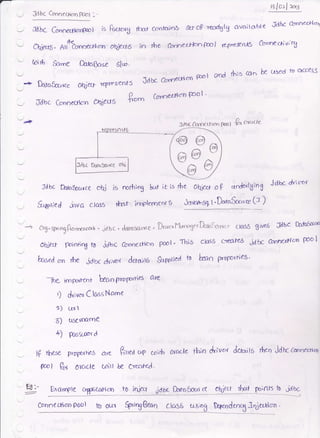 15/01/2015
Jdbc Connection Pool :-
Jdbc Connection pool is factory that contains set of readily available Jdbc Connection
Objects. All the Connection objects in the Connection pool represents Connectivity
with Same DataBase S/w.
→ DataSource object represents Jdbc Connection pool and this can be used to access
Jdbc Connection Objects from Connection pool.
→ Jdbc Connection pool for oracle
represents
Jdbc DataSource obj
Jdbc DataSource obj is nothing but it is the object of underlying Jdbc driver
Supplied java class that implements javax.sql.DataSource (I)
→ org.springframework.jdbc.datasource.DriverManagerDataSource class gives Jdbc DataSource
object pointing to jdbc connection pool. This class creates jdbc connection pool
based on the jdbc driver details supplied to bean properties.
The important bean properties are
1) driverClassName
2) url
3) username
4) password
If these properties are fixed up with oracle thin driver details then Jdbc Connection
pool for oracle will be created.
Eg:- Example application to inject jdbc DataSource object that points to jdbc
Connection pool to our SpringBean class using Dependency Injection.